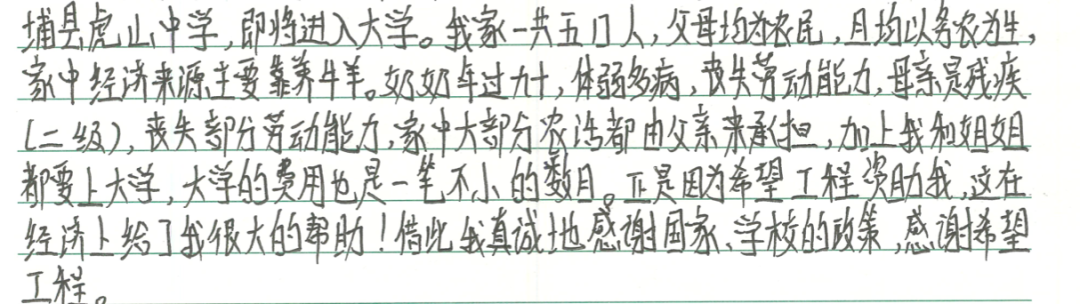 埔县虎山中学,即将进入大学。我家一共五口人,父母均为农民,且均以务农为生,
家中经济来源主要靠养牛羊。奶奶年过九十,体弱多病,丧失劳动能力,母亲是残疾
(二级),丧失部分劳动能力,家中大部分农活都由父亲来承担,加上我和姐姐
都要上大学,大学的费用也是一笔不小的数目。正是因为希望工程资助我,这在
经济上给了我很大的帮助!借此我真诚地感谢国家、学校的政策,感谢希望
工程。